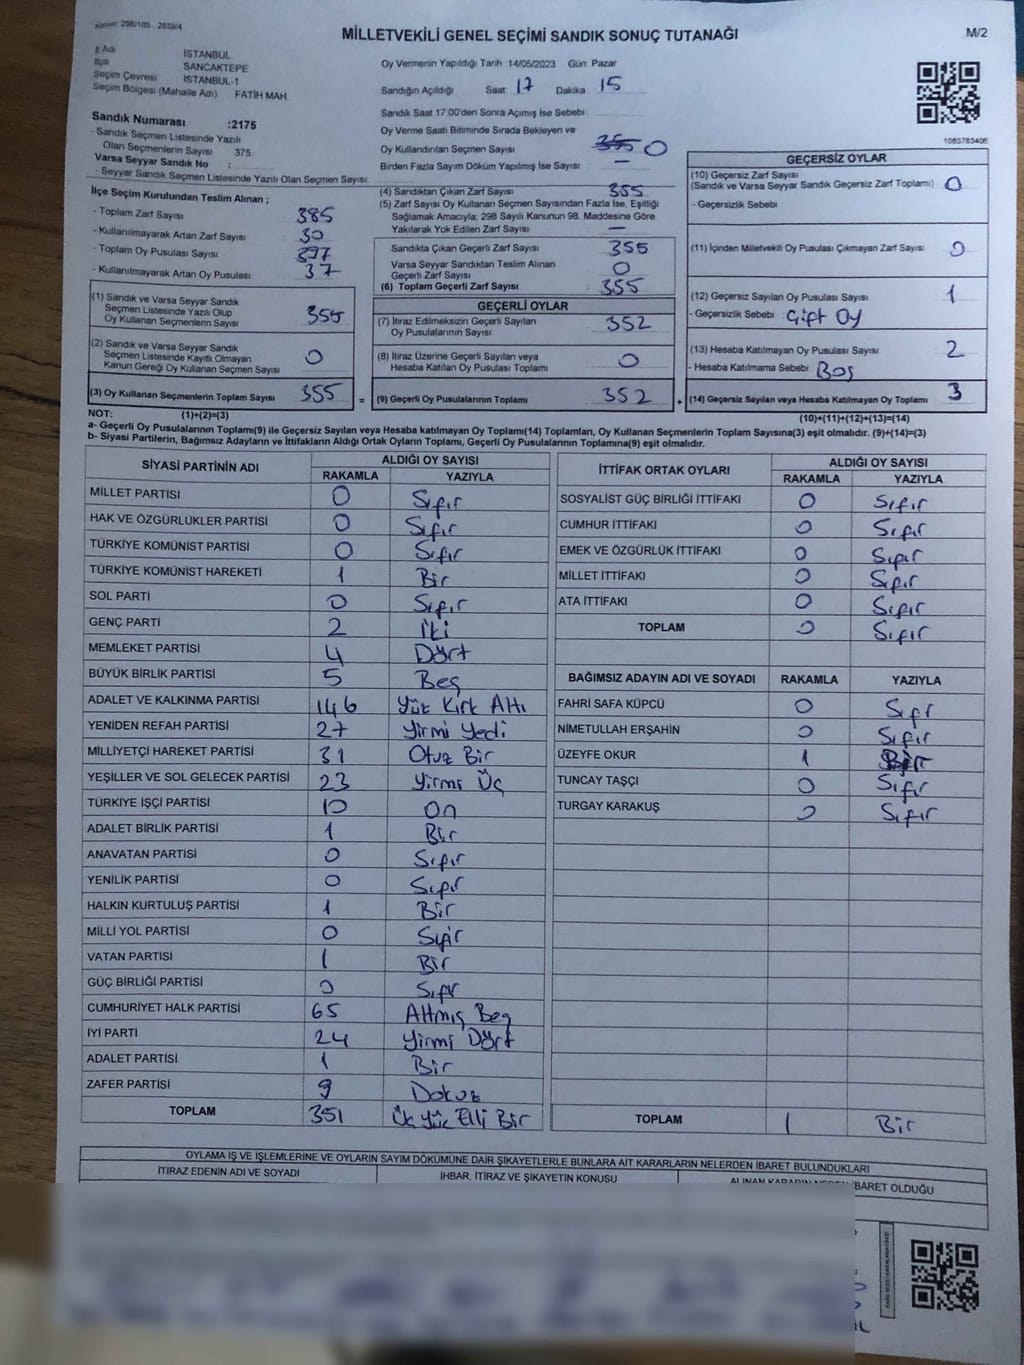 Kanun: 298/105 , 2839/4
MİLLETVEKİLİ GENEL SEÇİMİ SANDIK SONUÇ TUTANAĞI
M/2
İl Adı İSTANBUL
İlçe SANCAKTEPE
Seçim Çevresi İSTANBUL-1
Seçim Bölgesi (Mahalle Adı) FATİH MAH.
Oy Vermenin Yapıldığı Tarih 14/05/2023 Gün: Pazar
Sandığın Açıldığı Saat 17 Dakika 15
Sandık Saat 17:00'den Sonra Açılmış İse Sebebi
Oy Verme Saati Bitiminde Sırada Bekleyen ve
Oy Kullandırılan Seçmen Sayısı 355 0
Birden Fazla Sayım Döküm Yapılmış İse Sayısı —
1083783406
Sandık Numarası :2175
- Sandık Seçmen Listesinde Yazılı
Olan Seçmenlerin Sayısı 375
Varsa Seyyar Sandık No :
- Seyyar Sandık Seçmen Listesinde Yazılı Olan Seçmen Sayısı:
İlçe Seçim Kurulundan Teslim Alınan ;
- Toplam Zarf Sayısı 385
- Kullanılmayarak Artan Zarf Sayısı 30
- Toplam Oy Pusulası Sayısı
- Kullanılmayarak Artan Oy Pusulası 37
(1) Sandık ve Varsa Seyyar Sandık
Seçmen Listesinde Yazılı Olup
Oy Kullanan Seçmenlerin Sayısı 355
(2) Sandık ve Varsa Seyyar Sandık
Seçmen Listesinde Kayıtlı Olmayan
Kanun Gereği Oy Kullanan Seçmen Sayısı 0
(3) Oy Kullanan Seçmenlerin Toplam Sayısı 355 =
(4) Sandıktan Çıkan Zarf Sayısı 355
(5) Zarf Sayısı Oy Kullanan Seçmen Sayısından Fazla İse, Eşitliği
Sağlamak Amacıyla; 298 Sayılı Kanunun 98. Maddesine Göre
Yakılarak Yok Edilen Zarf Sayısı —
Sandıkta Çıkan Geçerli Zarf Sayısı 355
Varsa Seyyar Sandıktan Teslim Alınan
Geçerli Zarf Sayısı 0
(6) Toplam Geçerli Zarf Sayısı 355
GEÇERLİ OYLAR
(7) İtiraz Edilmeksizin Geçerli Sayılan
Oy Pusulalarının Sayısı 352
(8) İtiraz Üzerine Geçerli Sayılan veya
Hesaba Katılan Oy Pusulası Toplamı 0
(9) Geçerli Oy Pusulalarının Toplamı 352 +
GEÇERSİZ OYLAR
(10) Geçersiz Zarf Sayısı
(Sandık ve Varsa Seyyar Sandık Geçersiz Zarf Toplamı) 0
- Geçersizlik Sebebi
(11) İçinden Milletvekili Oy Pusulası Çıkmayan Zarf Sayısı 0
(12) Geçersiz Sayılan Oy Pusulası Sayısı 1
- Geçersizlik Sebebi: Çift Oy
(13) Hesaba Katılmayan Oy Pusulası Sayısı 2
- Hesaba Katılmama Sebebi Boş
(14) Geçersiz Sayılan veya Hesaba Katılmayan Oy Toplamı 3
NOT: (1)+(2)=(3) (10)+(11)+(12)+(13)=(14)
a- Geçerli Oy Pusulalarının Toplamı(9) ile Geçersiz Sayılan veya Hesaba katılmayan Oy Toplamı(14) Toplamları, Oy Kullanan Seçmenlerin Toplam Sayısına(3) eşit olmalıdır. (9)+(14)=(3)
b- Siyasi Partilerin, Bağımsız Adayların ve İttifakların Aldığı Ortak Oyların Toplamı, Geçerli Oy Pusulalarının Toplamına(9) eşit olmalıdır.
SİYASİ PARTİNİN ADI ALDIĞI OY SAYISI
RAKAMLA YAZIYLA
MİLLET PARTİSİ 0 Sıfır
HAK VE ÖZGÜRLÜKLER PARTİSİ 0 Sıfır
TÜRKİYE KOMÜNİST PARTİSİ 0 Sıfır
TÜRKİYE KOMÜNİST HAREKETİ 1 Bir
SOL PARTİ 0 Sıfır
GENÇ PARTİ 2 İki
MEMLEKET PARTİSİ 4 Dört
BÜYÜK BİRLİK PARTİSİ 5 Beş
ADALET VE KALKINMA PARTİSİ 146 Yüz Kırk Altı
YENİDEN REFAH PARTİSİ 27 Yirmi Yedi
MİLLİYETÇİ HAREKET PARTİSİ 31 Otuz Bir
YEŞİLLER VE SOL GELECEK PARTİSİ 23 Yirmi Üç
TÜRKİYE İŞÇİ PARTİSİ 10 On
ADALET BİRLİK PARTİSİ 1 Bir
ANAVATAN PARTİSİ 0 Sıfır
YENİLİK PARTİSİ 0 Sıfır
HALKIN KURTULUŞ PARTİSİ 1 Bir
MİLLİ YOL PARTİSİ 0 Sıfır
VATAN PARTİSİ 1 Bir
GÜÇ BİRLİĞİ PARTİSİ 0 Sıfır
CUMHURİYET HALK PARTİSİ 65 Altmış Beş
İYİ PARTİ 24 Yirmi Dört
ADALET PARTİSİ 1 Bir
ZAFER PARTİSİ 9 Dokuz
TOPLAM 351 Üç Yüz Elli Bir
İTTİFAK ORTAK OYLARI ALDIĞI OY SAYISI
RAKAMLA YAZIYLA
SOSYALİST GÜÇ BİRLİĞİ İTTİFAKI 0 Sıfır
CUMHUR İTTİFAKI 0 Sıfır
EMEK VE ÖZGÜRLÜK İTTİFAKI 0 Sıfır
MİLLET İTTİFAKI 0 Sıfır
ATA İTTİFAKI 0 Sıfır
TOPLAM 0 Sıfır
BAĞIMSIZ ADAYIN ADI VE SOYADI RAKAMLA YAZIYLA
FAHRİ SAFA KÜPCÜ 0 Sıfır
NİMETULLAH ERŞAHİN 0 Sıfır
ÜZEYFE OKUR 1 Bir
TUNCAY TAŞÇI 0 Sıfır
TURGAY KARAKUŞ 0 Sıfır
TOPLAM 1 Bir
OYLAMA İŞ VE İŞLEMLERİNE VE OYLARIN SAYIM DÖKÜMÜNE DAİR ŞİKAYETLERLE BUNLARA AİT KARARLARIN NELERDEN İBARET BULUNDUKLARI
İTİRAZ EDENİN ADI VE SOYADI İHBAR, İTİRAZ VE ŞİKAYETİN KONUSU ALINAN KARARIN NEDEN İBARET OLDUĞU